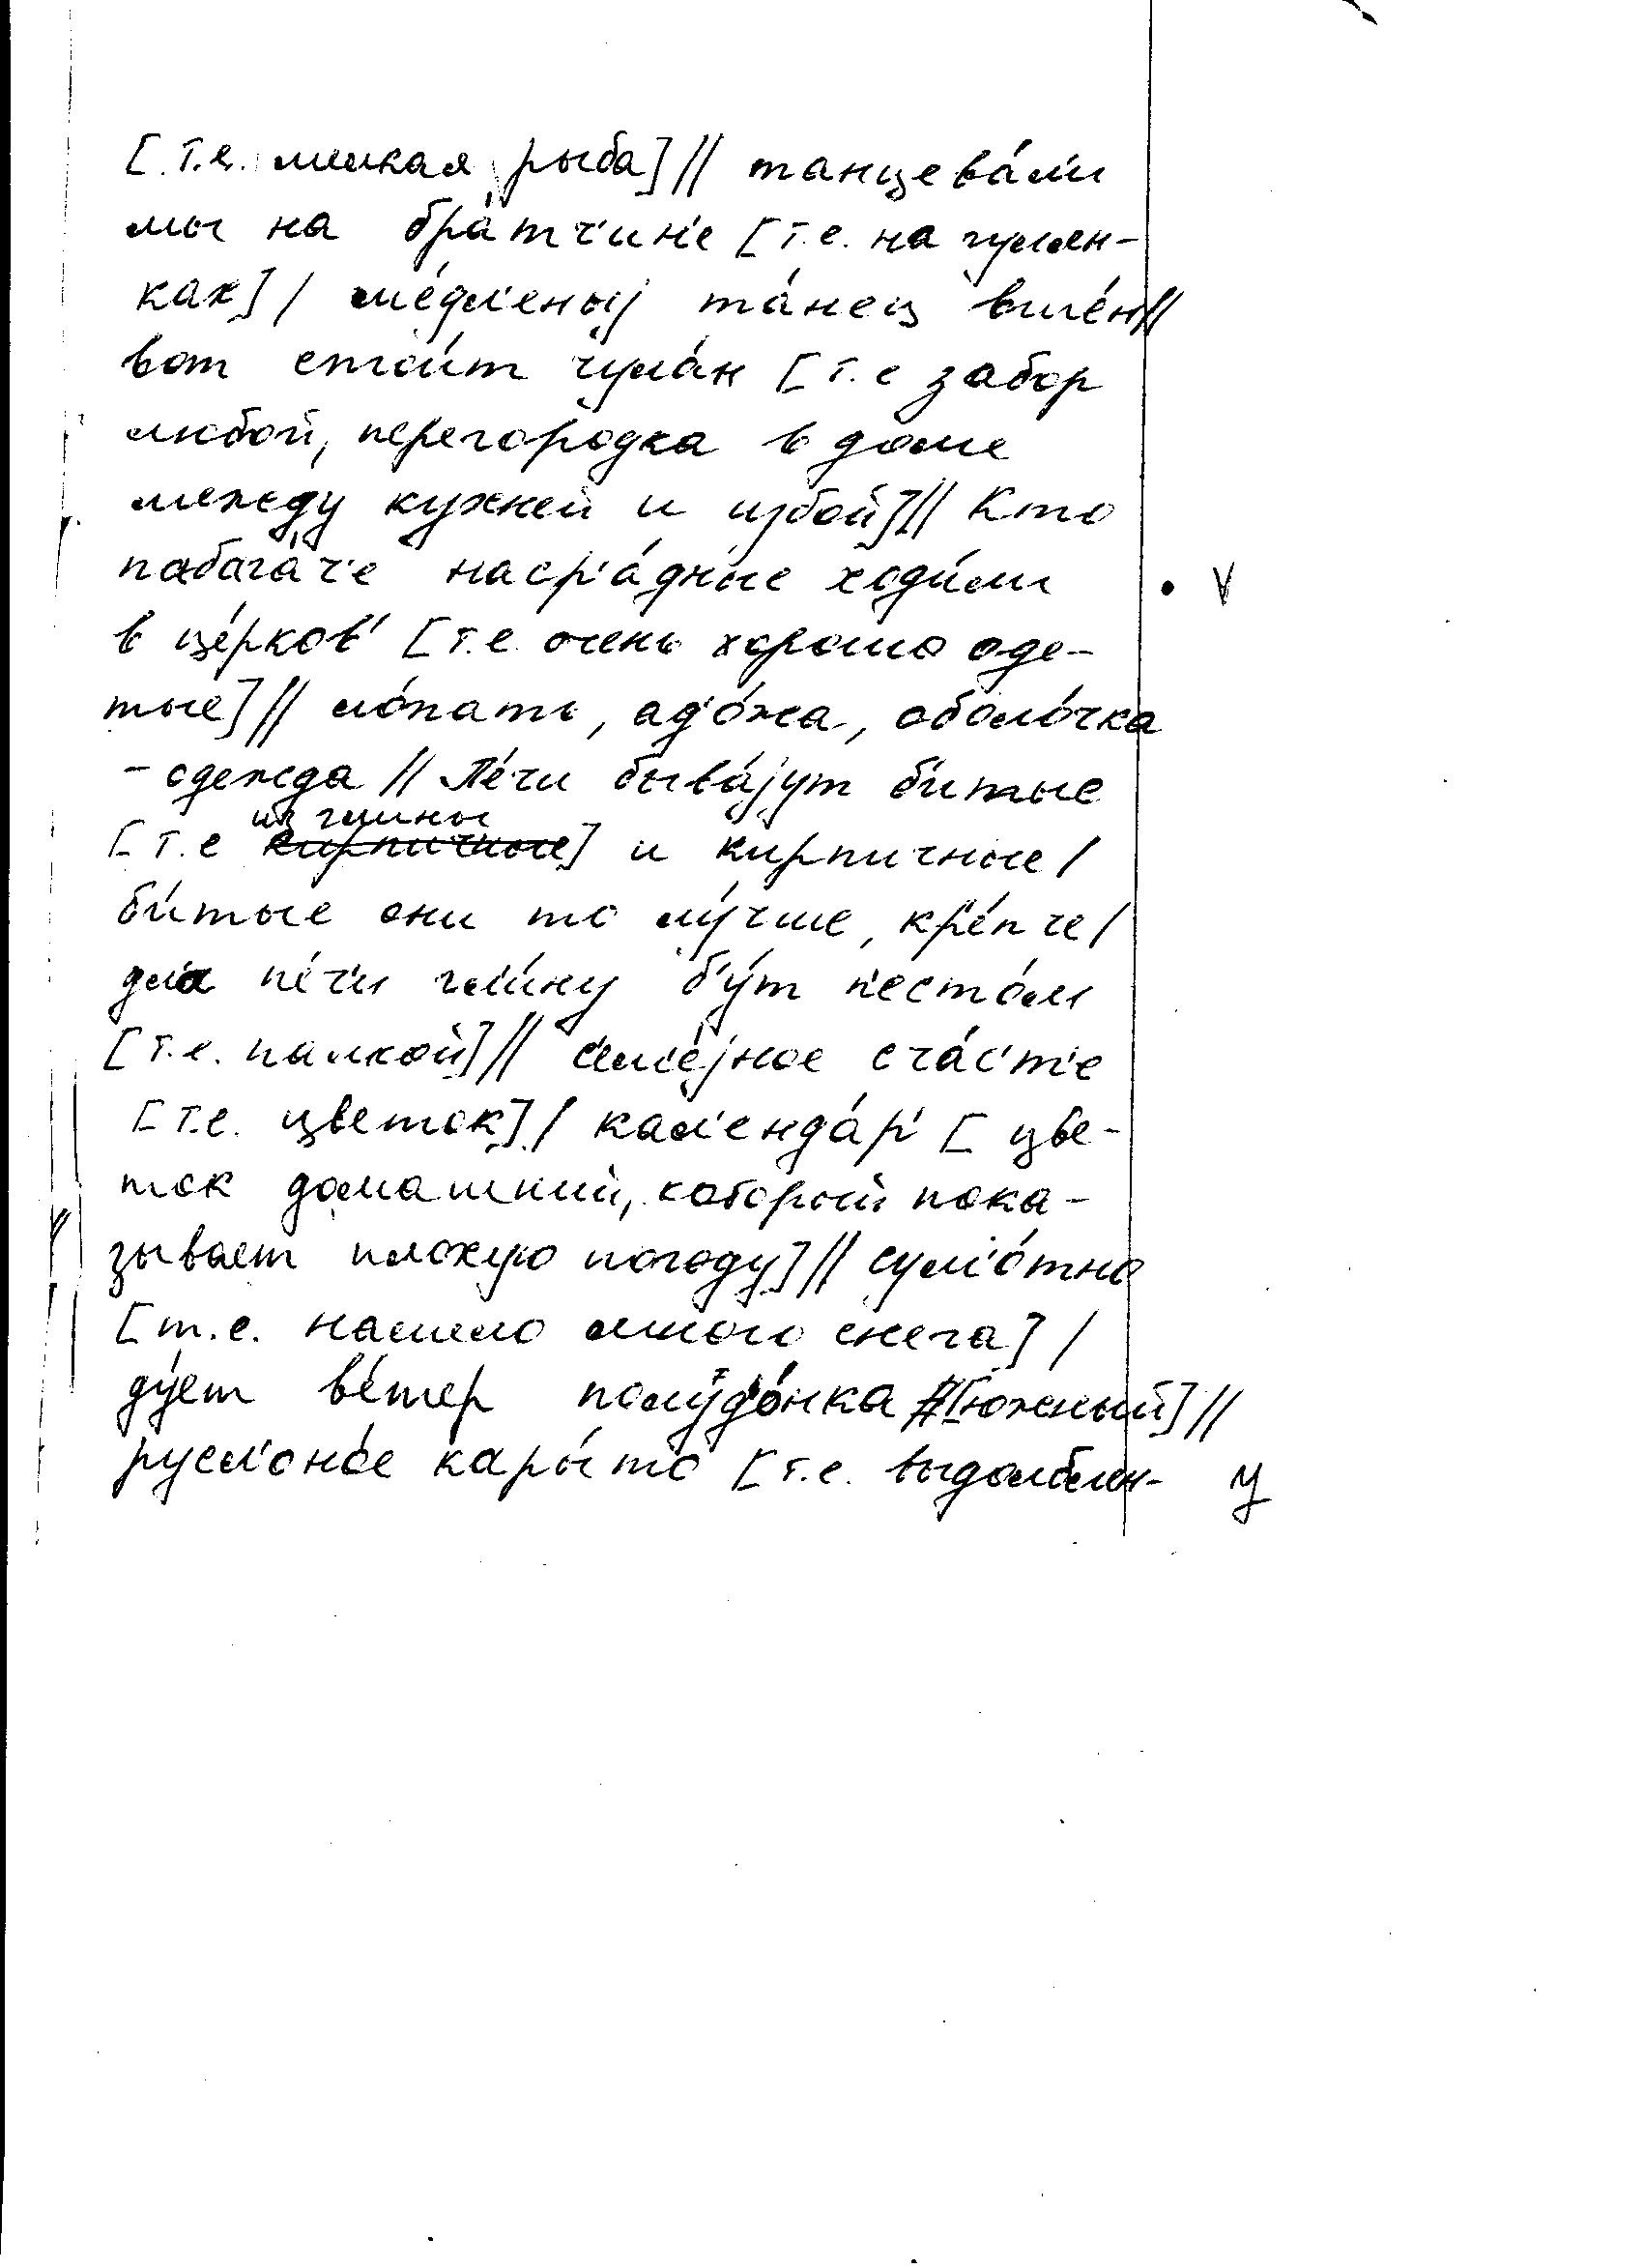 [т.е. мелкая рыба] // танцева́л'и
мы на бра́тч'ин'е [т.е. на гулян-
ках] / ме́дл'еныj та́нец вл'е́н //
вот стои́т чула́н [т.е забор
любой, перегородка в доме
между кухней и избой] // Кто
пабага́ч'е наср'а́дные ходи́ли V
в це́рков' [т.е. очень хорошо оде-
тые] // ло́пать, ад'о́жа, оболо́чка
- одежда // Пе́чи быва́jут би́тые
из глины
[т.е кирпичные] и кирпичные /
би́тые они то лу́чше, кр'е́пче /
для пе́ч'и гл'и́ну б'у́т п'есто́м
[т.е. палкой] // с'ем'е́jное сча́с'т'е
[т.е. цветок] / кал'енда́р' [ цве-
ток домашний, который пока-
зывает плохую погоду] // сум'о́тно
[т.е. намело много снега] /
ду́ет ве́тер полудё́нка [южный] //
русл'оно́е кары́то [т.е. выдолблен- У